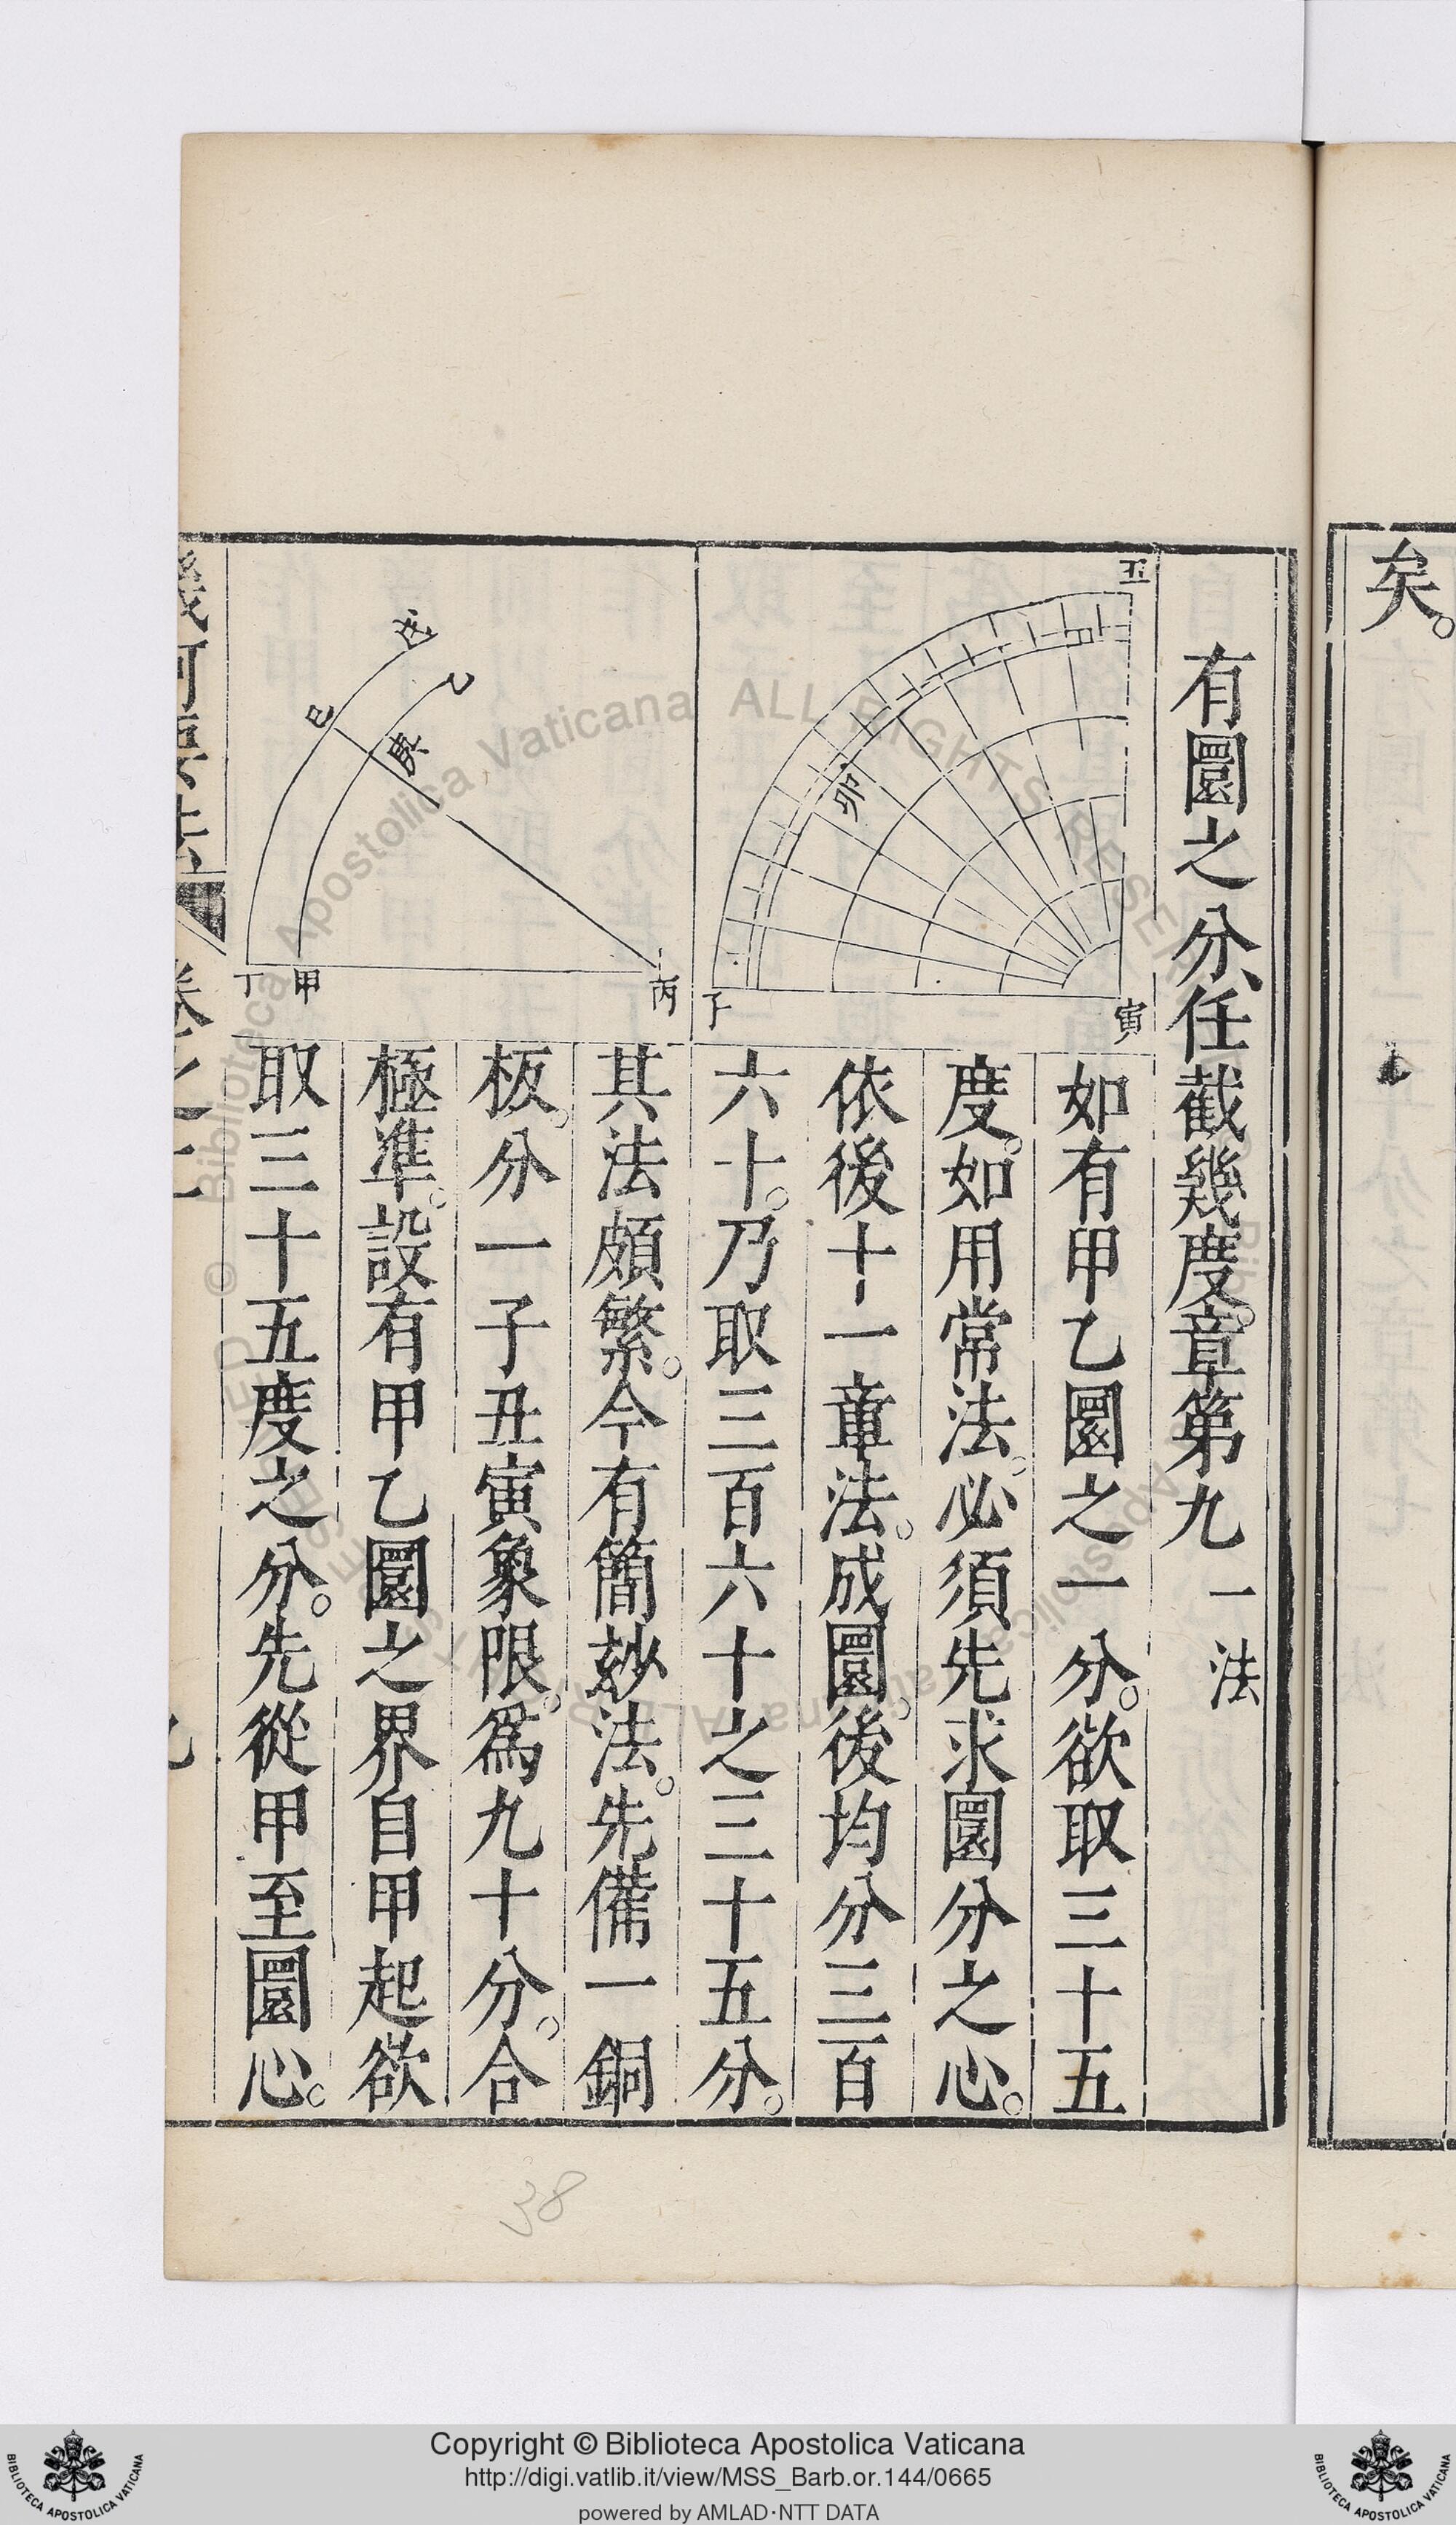 矣。
有圜之分、任截幾度。章第九 一法
如有甲乙圜之一分。欲取三十五
度。如用常法。必須先求圜分之心。
依後十一章法。成圜。後均分三百
六十。乃取三百六十之三十五分。
其法頗繁。今有簡玅法。先備一銅
板。分一子丑寅象限。爲九十分。合
極準。設有甲乙圜之界自甲起欲
取三十五度之分。先從甲至圜心。
丑
卯
子
寅
戊
乙
己
庚
丁
甲
丙
卷之二
38
Copyright © Biblioteca Apostolica Vaticana
http://digi.vatlib.it/view/MSS_Barb.or.144/0665
powered by AMLAD·NTT DATA
BIBLIOTECA APOSTOLICA VATICANA
BIBLIOTECA APOSTOLICA VATICANA